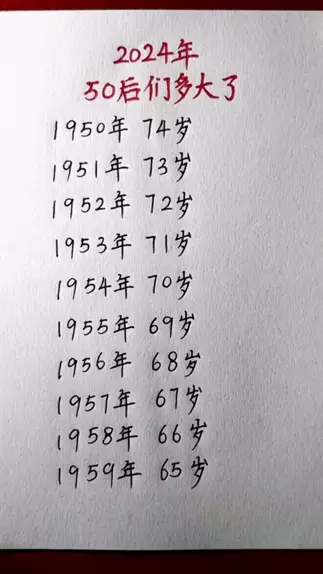 2024年
50后们多大了
1950年 74岁
1951年 73岁
1952年 72岁
1953年 71岁
1954年 70岁
1955年 69岁
1956年 68岁
1957年 67岁
1958年 66岁
1959年 65岁